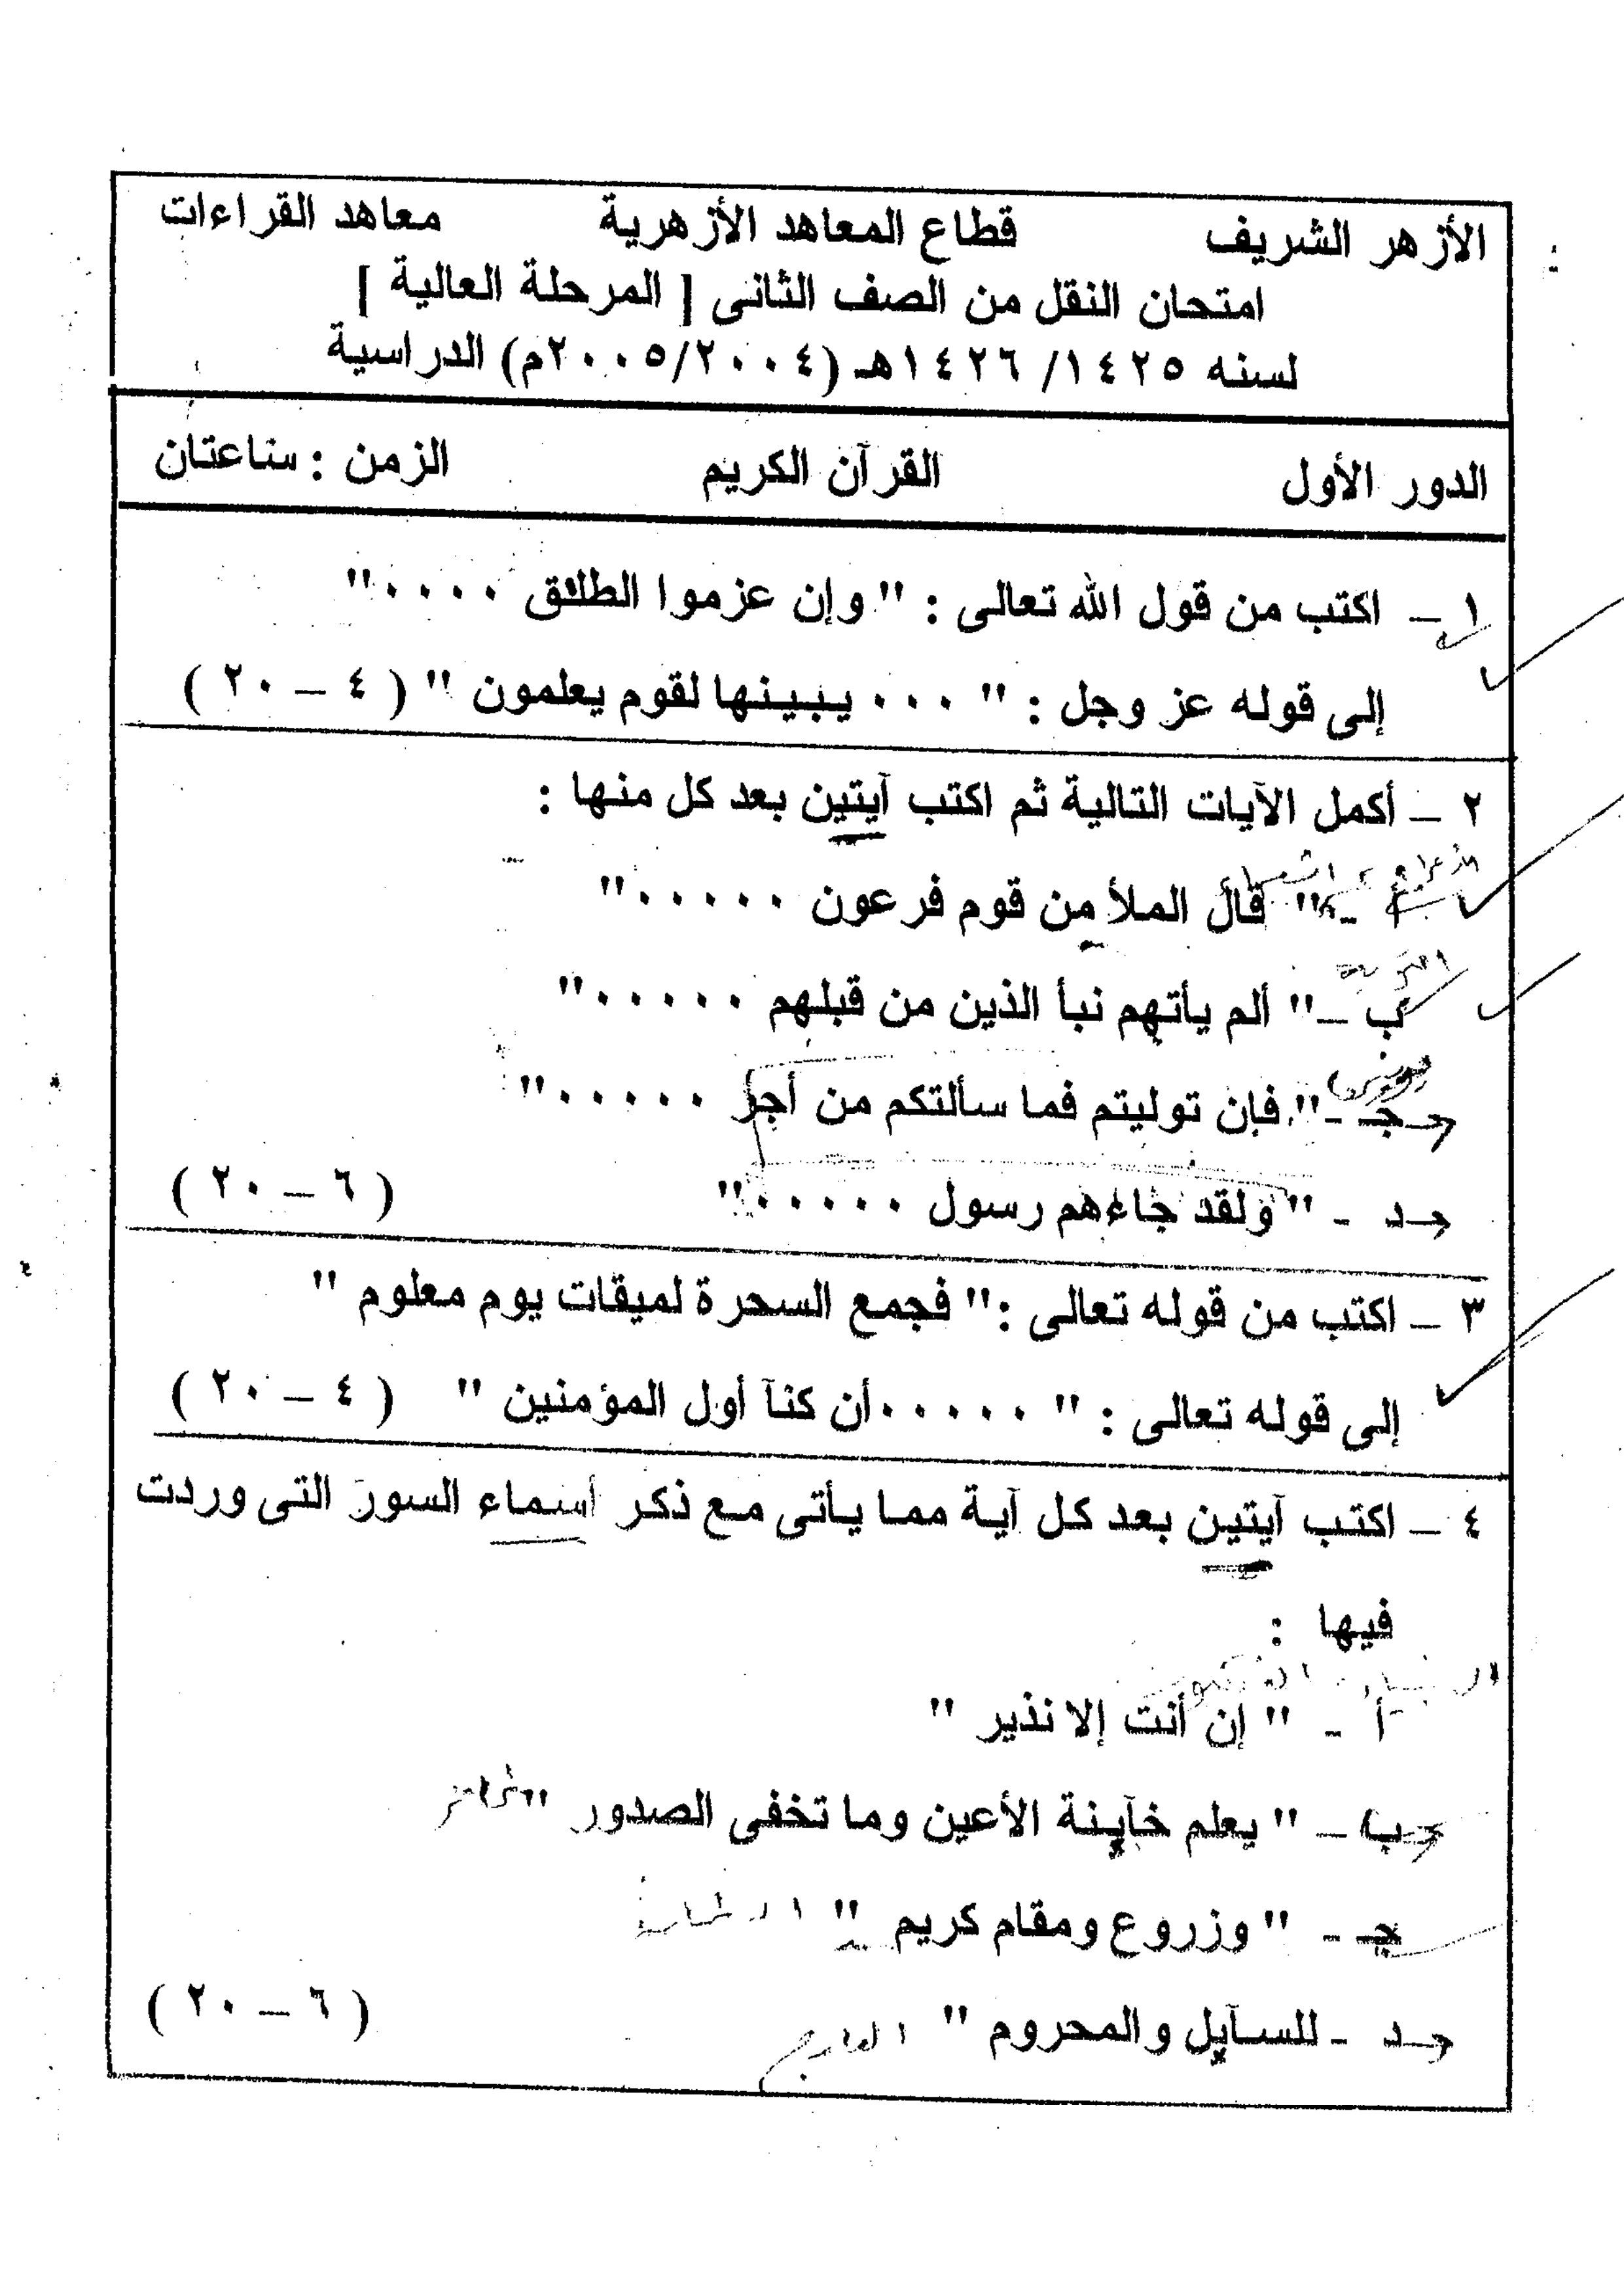 الأزهر الشريف قطاع المعاهد الأزهرية معاهد القراءات
امتحان النقل من الصف الثانى [ المرحلة العالية ]
لسنه ١٤٢٥/ ١٤٢٦هـ (٢٠٠٥/٢٠٠٤م) الدراسية
الدور الأول القرآن الكريم الزمن : ساعتان
١ – اكتب من قول الله تعالى : " وإن عزموا الطلاق ٠٠٠٠"
إلى قوله عز وجل : " ٠٠٠ يبينها لقوم يعلمون " ( ٤ – ٢٠ )
٢ – أكمل الآيات التالية ثم اكتب آيتين بعد كل منها :
أ - " قال الملأ من قوم فرعون ٠٠٠٠٠"
ب –" ألم يأتهم نبأ الذين من قبلهم ٠٠٠٠٠"
جـ -" فإن توليتم فما سألتكم من أجر ٠٠٠٠٠"
د - " ولقد جاءهم رسول ٠٠٠٠٠" ( ٦ – ٢٠ )
٣ – اكتب من قوله تعالى :" فجمع السحرة لميقات يوم معلوم "
إلى قوله تعالى : " ٠٠٠٠٠أن كنآ أول المؤمنين " ( ٤ – ٢٠ )
٤ – اكتب آيتين بعد كل آية مما يأتى مع ذكر أسماء السور التى وردت
فيها :
أ - " إن أنت إلا نذير "
ب – " يعلم خآينة الأعين وما تخفى الصدور " غافر
جـ - " وزروع ومقام كريم " الدخان
د - للسآيل والمحروم " المعارج